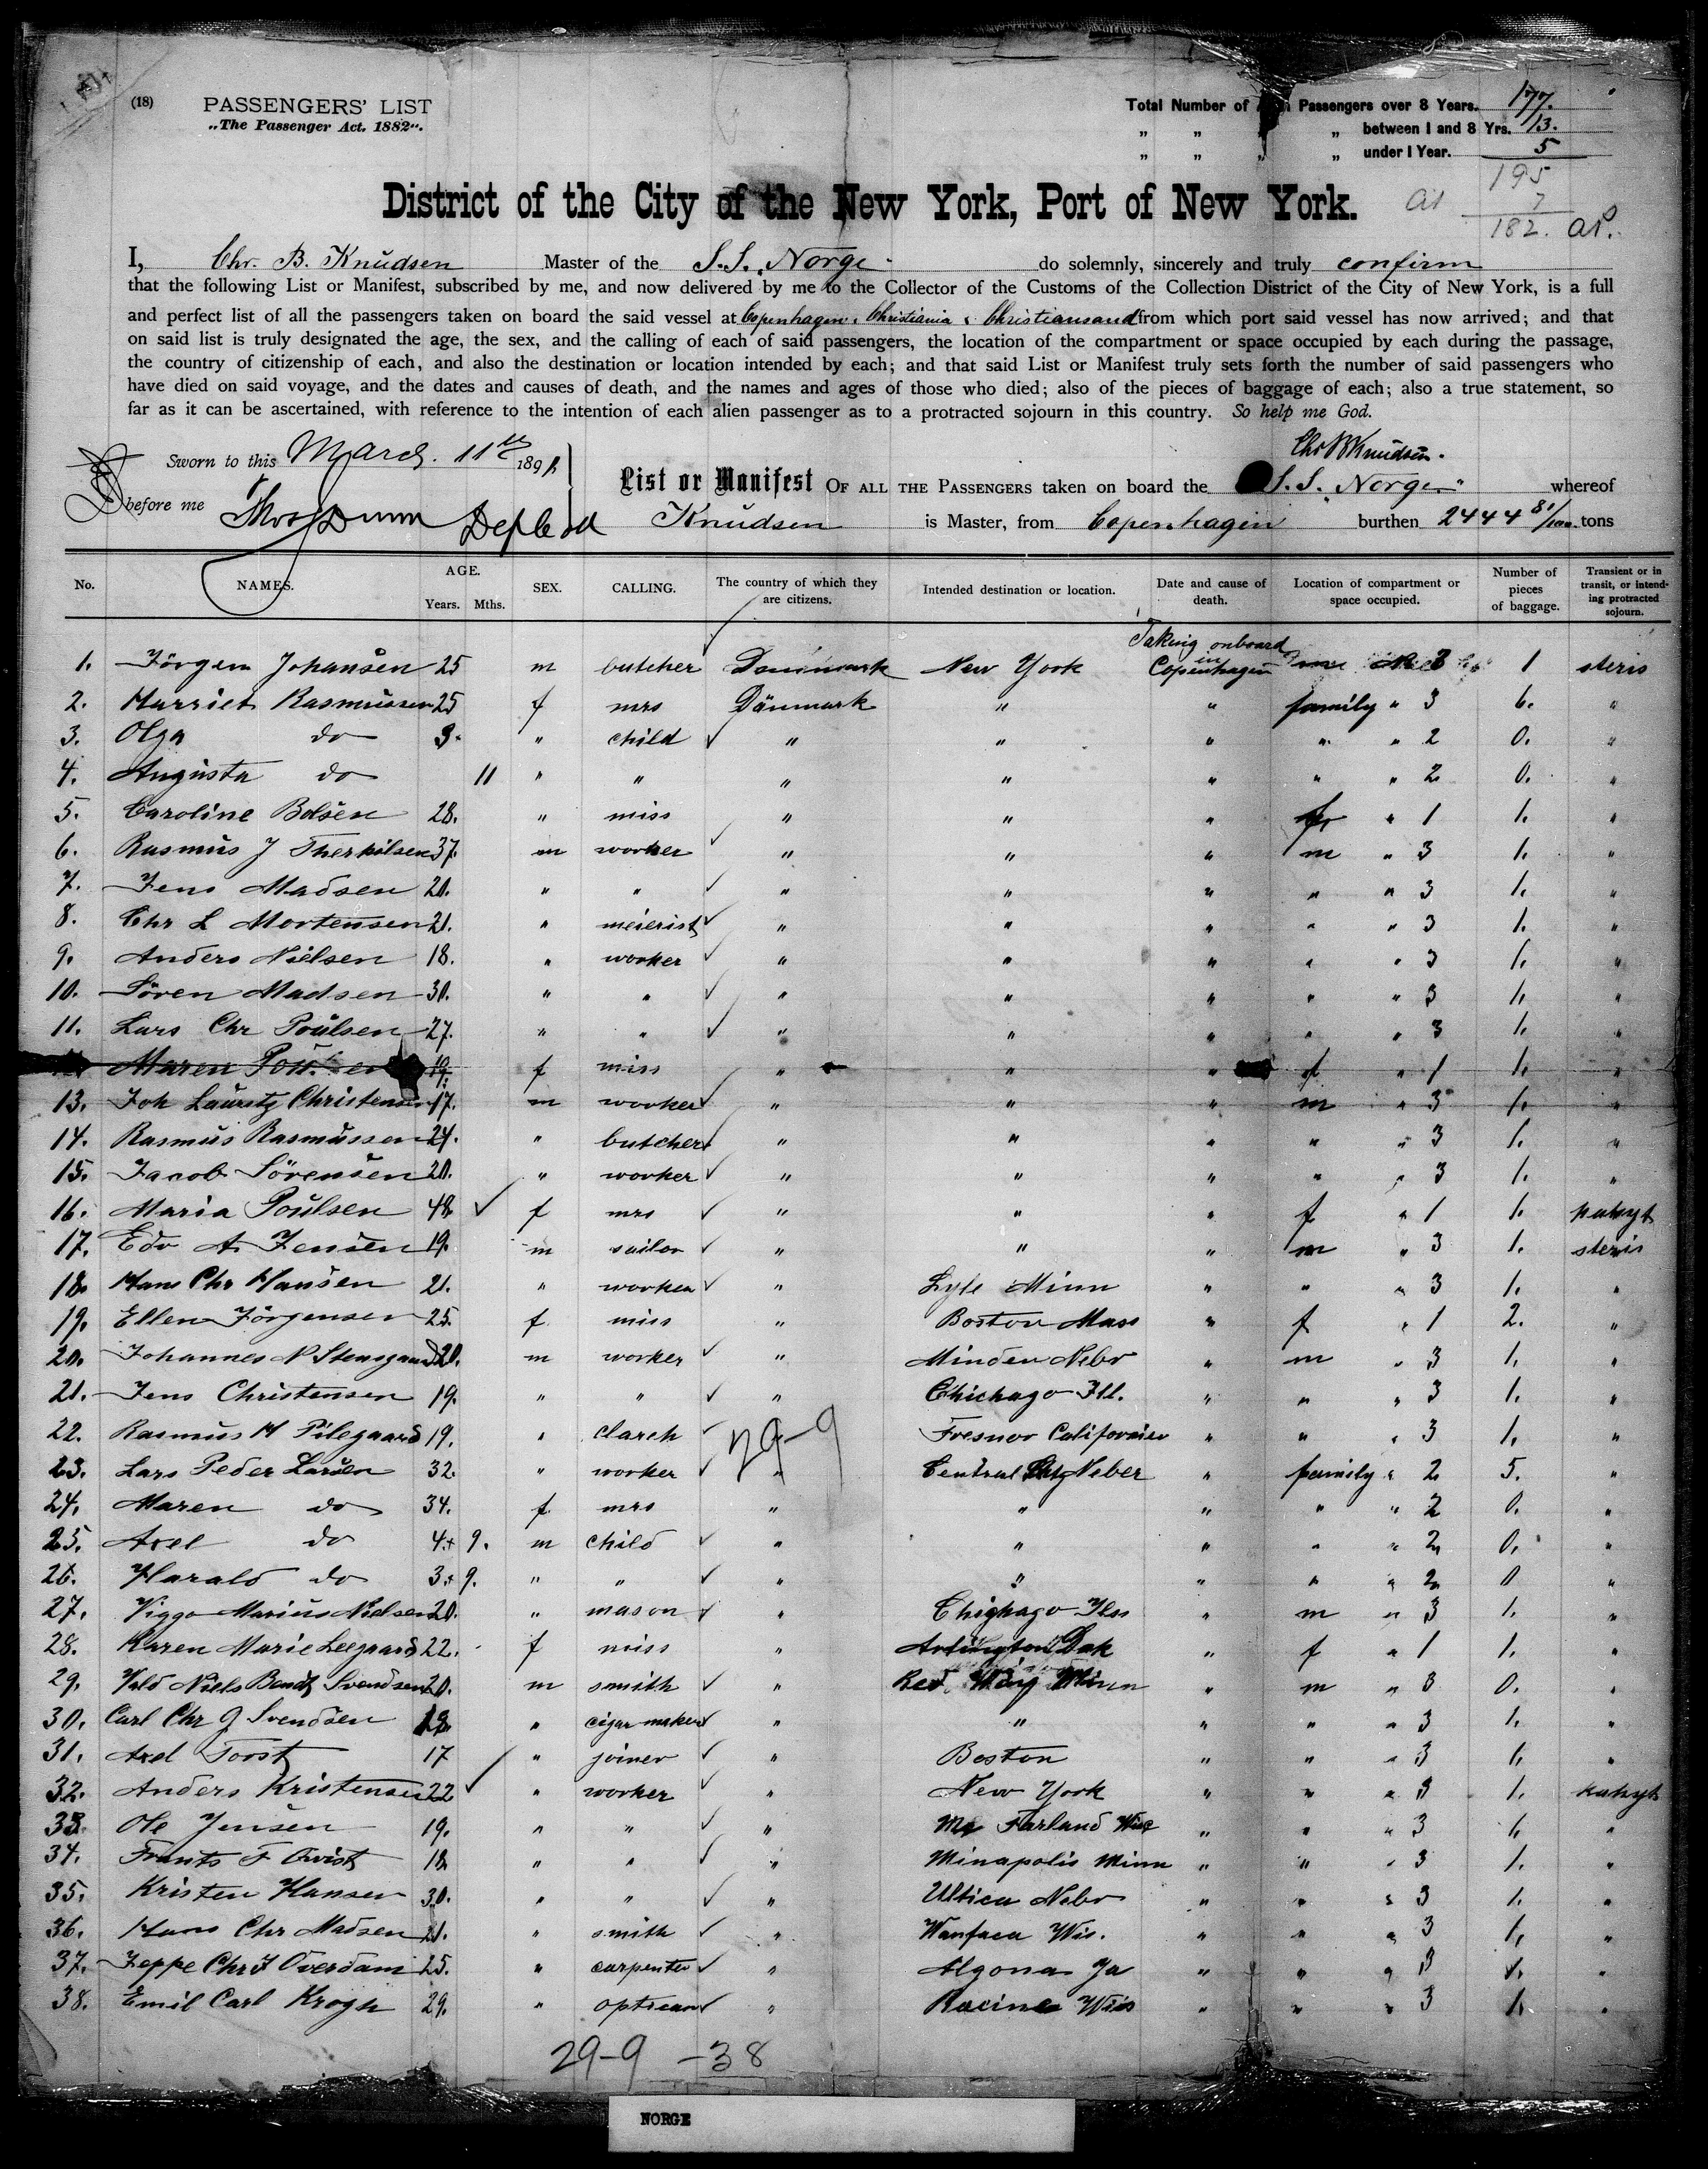 (18) PASSENGERS' LIST
„The Passenger Act. 1882".
Total Number of Passengers over 8 Years. 177.
„ „ „ „ between 1 and 8 Yrs. 13.
„ „ „ „ under 1 Year. 5
195
7
182.
District of the City of the New York, Port of New York.
I, Chr. B. Knudsen Master of the S.S. „Norge" do solemnly, sincerely and truly confirm
that the following List or Manifest, subscribed by me, and now delivered by me to the Collector of the Customs of the Collection District of the City of New York, is a full
and perfect list of all the passengers taken on board the said vessel at Copenhagen, Christiania & Christiansand from which port said vessel has now arrived; and that
on said list is truly designated the age, the sex, and the calling of each of said passengers, the location of the compartment or space occupied by each during the passage,
the country of citizenship of each, and also the destination or location intended by each; and that said List or Manifest truly sets forth the number of said passengers who
have died on said voyage, and the dates and causes of death, and the names and ages of those who died; also of the pieces of baggage of each; also a true statement, so
far as it can be ascertained, with reference to the intention of each alien passenger as to a protracted sojourn in this country. So help me God.
Chr B Knudsen.
Sworn to this March 11th 189
before me Thos Dunn
List or Manifest OF ALL THE PASSENGERS taken on board the S.S. „Norge" whereof
Knudsen is Master, from Copenhagen burthen 2444 81/100 tons
No. NAMES. AGE. Years. Mths. SEX. CALLING. The country of which they are citizens. Intended destination or location. Date and cause of death. Location of compartment or space occupied. Number of pieces of baggage. Transient or in transit, or intending protracted sojourn.
Taking onboard
1. Jörgen Johansen 25 m butcher Danmark New York in Copenhagen 3 1 steris
2. Harriet Rasmussen 25 f mrs Danmark " " family " 3 6. "
3. Olga do 3. " child " " " " " 2 0. "
4. Augusta do 11 " " " " " " " 2 0. "
5. Caroline Bolsen 28. " miss " " " " 1 1. "
6. Rasmus J Therkilsen 37. m worker " " " m " 3 1. "
7. Jens Madsen 20. " " " " " " " 3 1. "
8. Chr L Mortensen 21. " meierist " " " " " 3 1. "
9. Anders Nielsen 18. " worker " " " " " 3 1. "
10. Sören Madsen 30. " " " " " " " 3 1. "
11. Lars Chr Poulsen 27. " " " " " " " 3 1. "
Maren Poulsen 19. f miss " " " f " 1 1. "
13. Joh Lauritz Christensen 17. m worker " " " m " 3 1. "
14. Rasmus Rasmussen 24. " butcher " " " " " 3 1. "
15. Jacob Sörensen 20. " worker " " " " " 3 1. "
16. Maria Poulsen 48 f mrs " " " f " 1 1.
17. Edv A. Jensen 19. m sailor " " " m " 3 1. steris
18. Hans Chr Hansen 21. " worker " Lyle Minn " " " 3 1. "
19. Ellen Jörgensen 25. f miss " Boston Mass " f " 1 2. "
20. Johannes N Stensgaard 20. m worker " Minden Nebr " m " 3 1. "
21. Jens Christensen 19. " " " Chichago Ill. " " " 3 1. "
22. Rasmus M Pilegaard 19. " clarck " Fresnov Californien " " " 3 1. "
29-9
23. Lars Peder Larsen 32. " worker " Central City Neber " family " 2 5. "
24. Maren do 34. f mrs " " " " " 2 0. "
25. Axel do 4 9. m child " " " " " 2 0. "
26. Harald do 3 9. " " " " " " " 2 0 "
27. Viggo Marius Nielsen 20. " mason " Chighago Ills " m " 3 1. "
28. Karen Marie Leegaard 22. f miss " Arlington Dak " f " 1 1. "
29. Vald Niels Bendt Svendsen 20. m smith " Red Wing Minn " m " 3 0. "
30. Carl Chr G Svendsen 18 " cigar maker " " " " " 3 1. "
31. Axel Toost 17 " joiner " Boston " " " 3 1. "
32. Anders Kristensen 22 " worker " New York " " " 3 1.
33. Ole Jensen 19. " " " Mc Farland Wisc " " " 3 1. "
34. Frants F Qvist 18 " " " Minapolis Minn " " " 3 1. "
35. Kristen Hansen 30. " " " Ultica Nebr " " " 3 1. "
36. Hans Chr Madsen 21. " smith " Wanfaca Wis. " " " 3 1. "
37. Jeppe Chr J Overdam 25. " carpenter " Algona Ja " " " 3 1. "
38. Emil Carl Krogh 29. " optican " Racine Wiis " " " 3 1. "
29-9 -38
NORGE